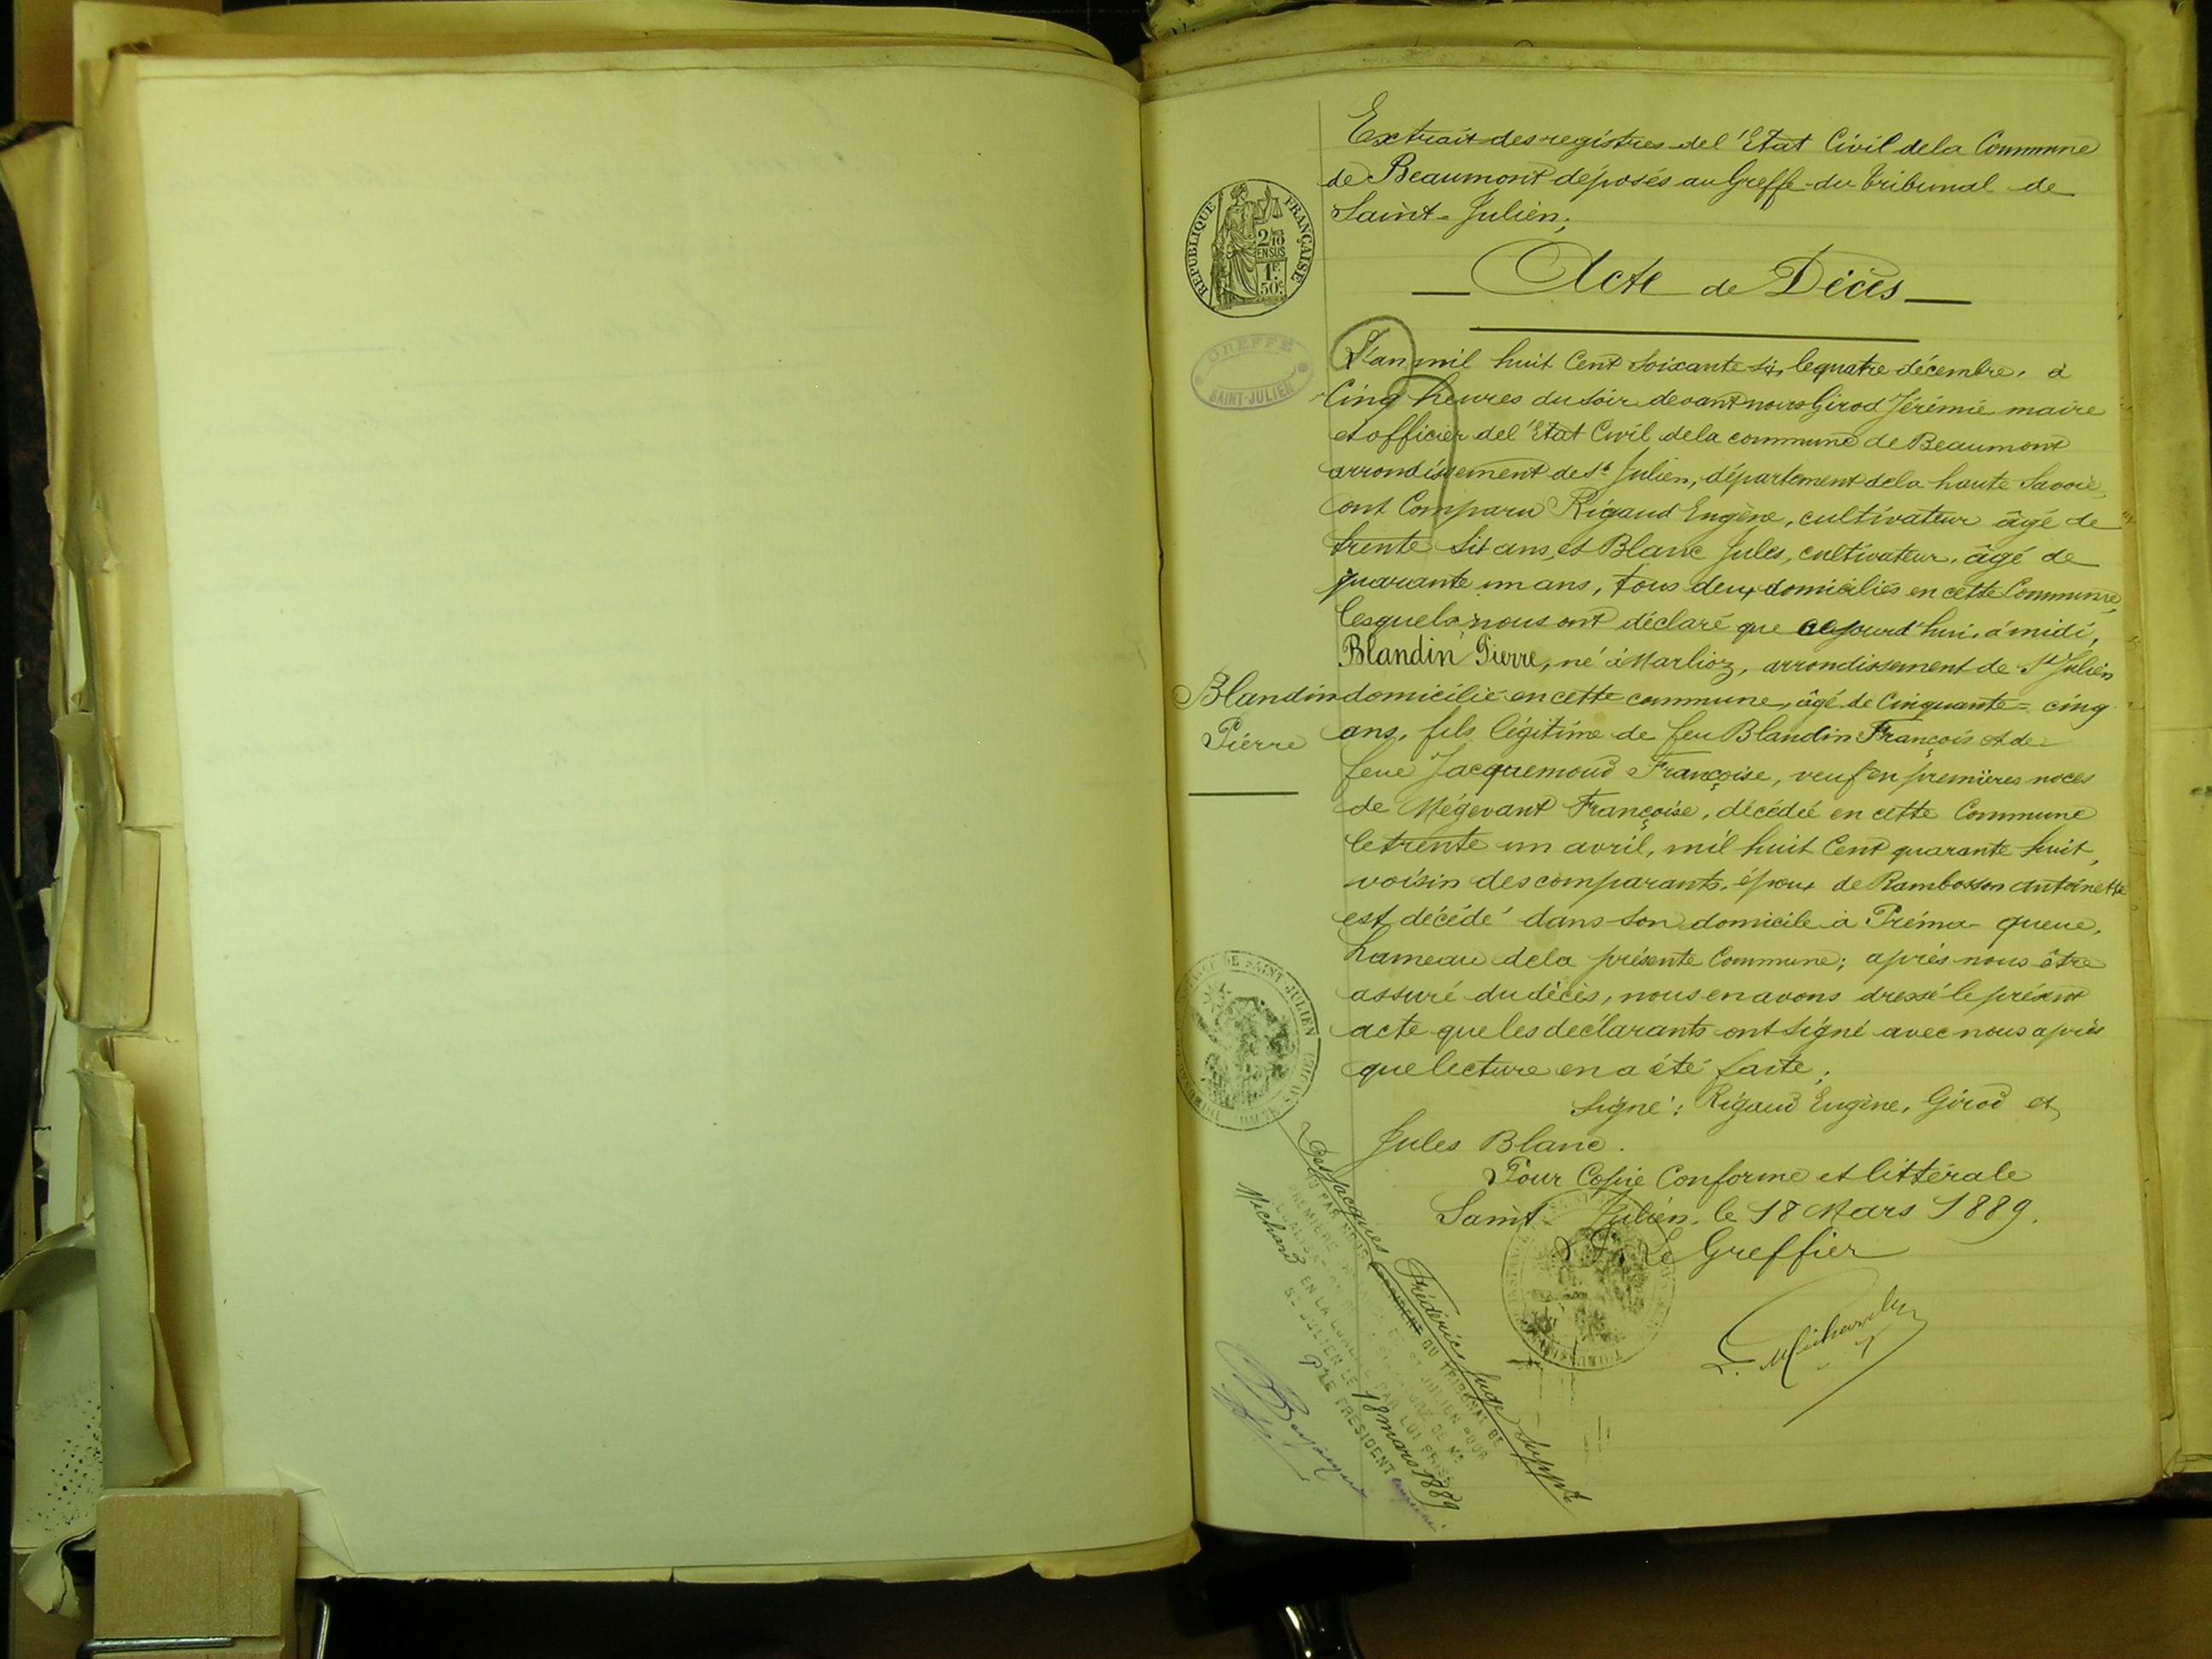 Extrait des registres de l'Etat Civil de la Commune
de Beaumont déposés au Greffe du tribunal de
Saint-Julien;
REPUBLIQUE FRANÇAISE
2/10
EN SUS
1F.
50c.
Acte de Décès
GREFFE
SAINT-JULIEN
L'an mil huit Cent soixante six, le quatre décembre, à
Cinq heures du soir devant nous Girod Jérémie maire
et officier de l'Etat Civil de la commune de Beaumont
arrondissement de St Julien, département de la haute Savoie,
ont Comparu Rigaud Eugène, cultivateur âgé de
trente six ans, et Blanc Jules, cultivateur, âgé de
quarante un ans, tous deux domiciliés en cette Commune,
lesquels nous ont déclaré que aujourd'hui, à midi,
Blandin Pierre, né à Marlioz, arrondissement de St Julien
Blandin
Pierre
domicilié en cette commune, âgé de Cinquante=cinq
ans, fils légitime de feu Blandin François et de
feue Jacquemoud Françoise, veuf en premières noces
de Mégevant Françoise, décédée en cette Commune
le trente un avril, mil huit Cent quarante huit,
voisin des comparants, époux de Rambosson Antoinette
est décédé dans son domicile à Préma-queue,
hameau de la présente Commune; après nous être
assuré du décès, nous en avons dressé le présent
acte que les déclarants ont signé avec nous après
que lecture en a été faite;
DE SAINT-JULIEN
Signé: Rigaud Eugène, Girod et
Jules Blanc.
Pour Copie Conforme et littérale
Saint-Julien, le 18 Mars 1889.
Le Greffier
Michard
Jacquies Frédéric Juge Suppt
VU PAR NOUS PRÉSIDENT DU TRIBUNAL DE
PREMIÈRE ST JULIEN POUR
DE Me
Michard EN LA QUALITÉ PAR LUI PRISE
ST JULIEN LE 18 mars 1889
Ple PRÉSIDENT